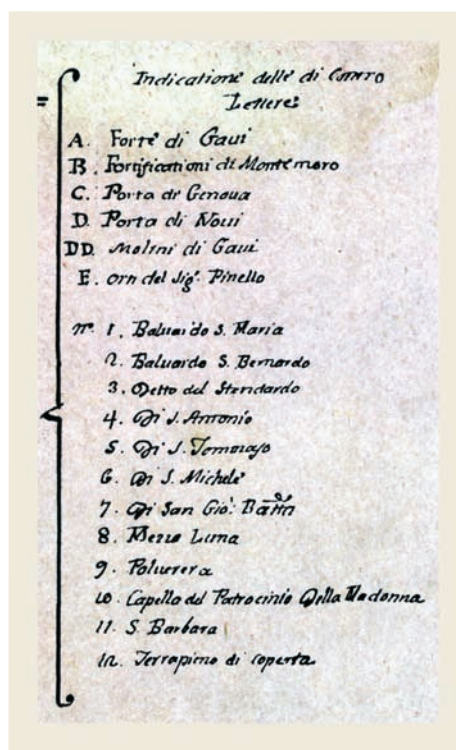 Indicatione delle di Contro
Lettere
A. Forte di Gaui
B. Fortificationi di Montemoro
C. Porta di Genoua
D. Porta di Noui
DD. Molini di Gaui
E. Orn del Sig.r Pinello
n.º 1. Baluardo S. Maria
2. Baluardo S. Bernardo
3. Detto del Stendardo
4. Di S. Antonio
5. Di S. Tommaso
6. Di S. Michele
7. Di San Gio: Batta
8. Mezza Luna
9. Poluerera
10. Capella del Patrocinio Della Madonna
11. S. Barbara
12. Terrapieno di Coperta